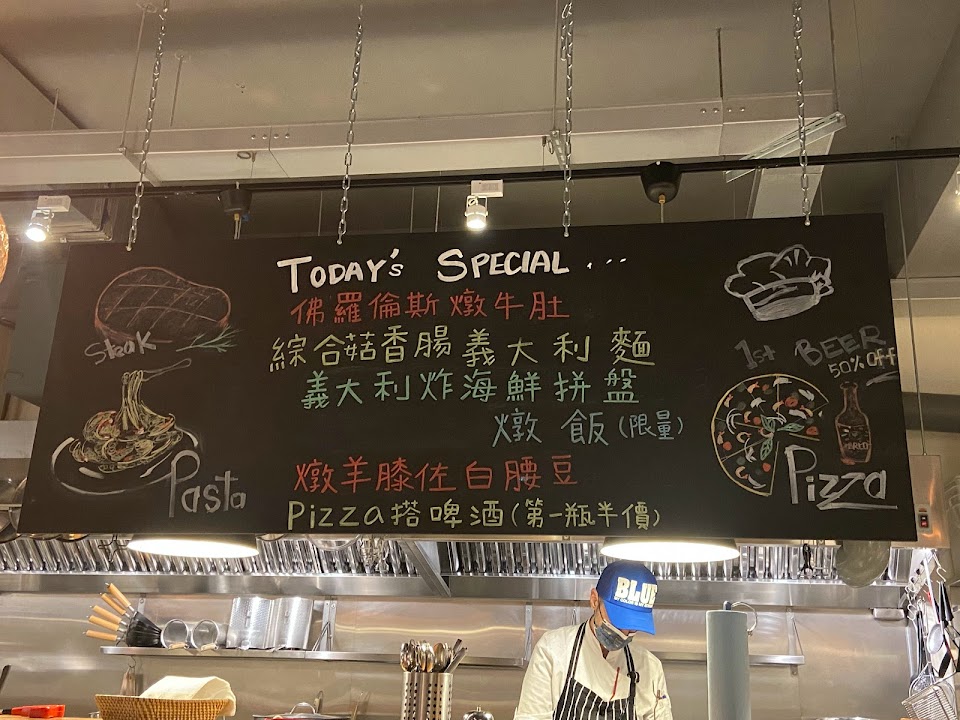 TODAY's SPECIAL ...
佛羅倫斯燉牛肚
綜合菇香腸義大利麵
義大利炸海鮮拼盤
燉飯(限量)
燉羊膝佐白腰豆
Pizza搭啤酒(第一瓶半價)
Steak
Pasta
1st BEER
50% Off
酒
Pizza
BLUE